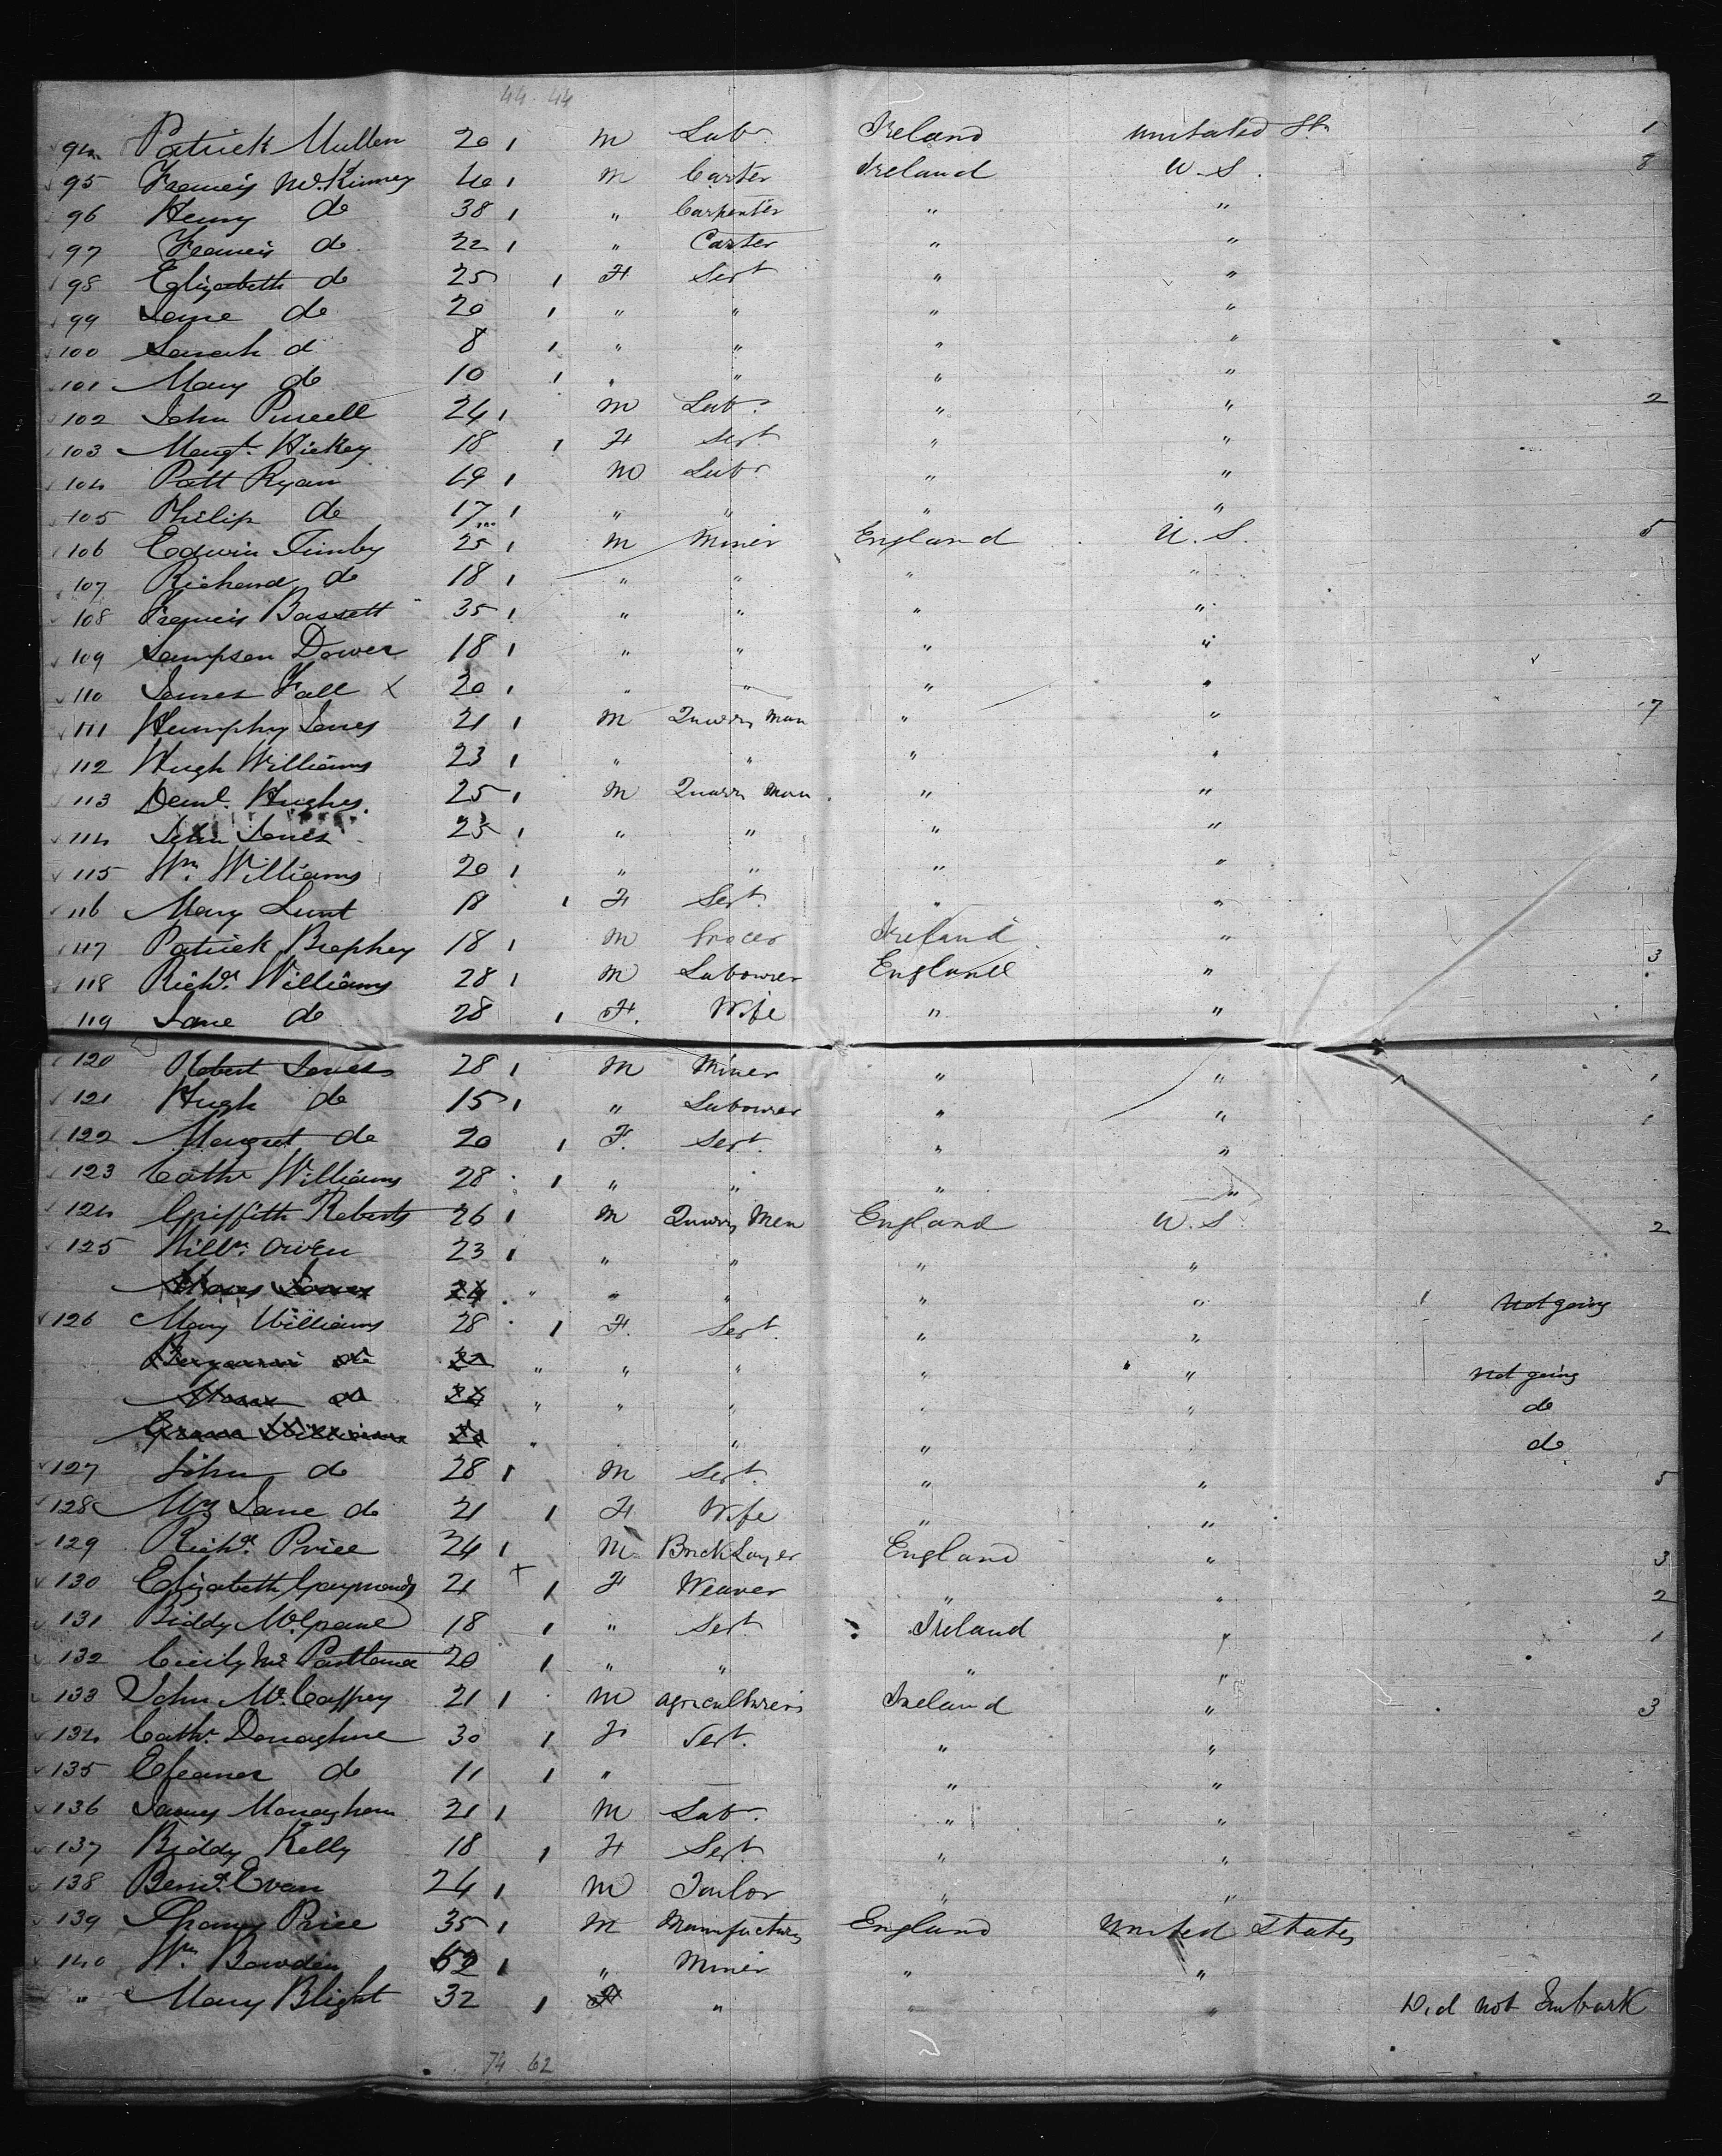 44. 44
94 Patrick Mullen 20 1 M Labr. Ireland United Sts 1
95 Francis McKinney 40 1 M Carter Ireland U.S. 8
96 Henry do 38 1 " Carpenter " "
97 Francis do 22 1 " Carter " "
98 Elizabeth do 25 1 F Servt " "
99 Jane do 20 1 " " " "
100 Sarah d 8 1 " " " "
101 Mary do 10 1 " " " "
102 John Purcell 24 1 M Labr. " " 2
103 Margt. Hickey 18 1 F Servt. " "
104 Patt Ryan 19 1 M Labr " "
105 Philip do 17 1 " " " "
106 Edwin Timby 25 1 M Miner England U.S. 5
107 Richard do 18 1 " " " "
108 Francis Bassett 35 1 " " " "
109 Sampson Dower 18 1 " " " "
110 James Fall X 20 1 " " " "
111 Humphy Jones 21 1 M Quarry Man " " 7
112 Hugh Williams 23 1 " " " "
113 Danl. Hughes 25 1 M Quarry Man " "
114 John Jones 25 1 " " " "
115 Wm. Williams 20 1 " " " "
116 Mary Lunt 18 1 F Servt. " "
117 Patrick Brophey 18 1 M Grocer Ireland "
118 Richd. Williams 28 1 M Labourer England " 3
119 Jane do 28 1 F. Wife " "
120 Robert Jones 28 1 M Miner " " 1
121 Hugh do 15 1 " Labourer " " 1
122 Margret do 20 1 F. Servt. " "
123 Cathr Williams 28 1 " " " "
124 Griffith Roberts 26 1 M Quarry Men England U.S. 2
125 Willm. Owen 23 1 " " " "
Jones 24 " " " " " 1 Not going
126 Mary Williams 28 1 F. Servt. " "
Benjamin do " " " " " not going
do 24 " " " " " do
Williams " " " do
127 John do 28 1 M Servt. " " 5
128 Mrs Jane do 21 1 F Wife " "
129 Richd. Price 24 1 M Brick Layer England " 3
130 Elizabeth Gaymonds 21 + 1 F Weaver " " 2
131 Biddy McGrane 18 1 " Servt. Ireland " 1
132 Cicily McPartland 20 1 " " " "
133 John McCaffrey 21 1 M agriculturers Ireland " 3
134 Cathr. Donaghue 30 1 F Servt. " "
135 Eleanor do 11 1 " " "
136 James Monaghan 21 1 M Labr. " "
137 Biddy Kelly 18 1 F Servt. " "
138 Benjn. Evan 24 1 M Tailor " "
139 Thomas Price 35 1 M Manufacturer England United States
140 Wm. Bowden 52 1 " Miner " "
" Mary Blight 32 1 F " " " Did not Embark
74 62